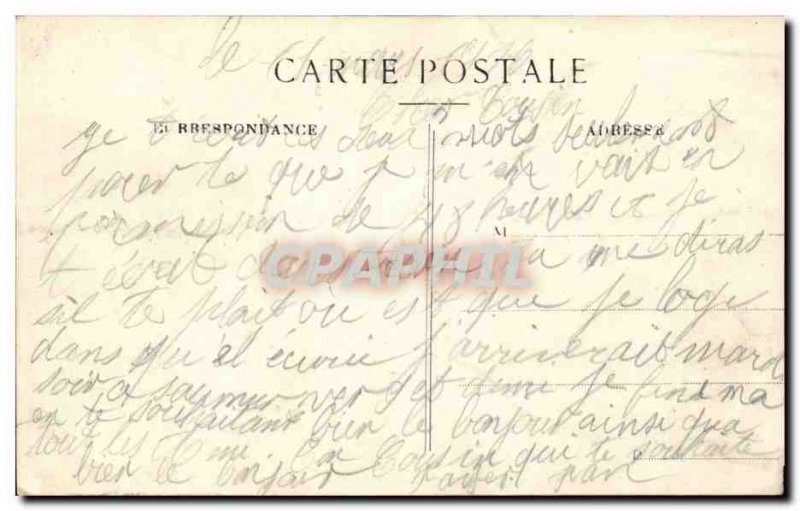 le mars
CARTE POSTALE
Cher Cousin
RRESPONDANCE
ADRESSE
ge t ecrit ces deux mots seulement
pour te que j m'en vait en
permission de 48 heures et je
M
t écrit dans tu me diras
sil te plait ou est que je loge
dans qu'el écurie j'arriverait mard
soir a saumur vers 9 et demi je fini ma
en te souhaitant bien le bonjour ainsi qua
tous les ami. ton Cousin qui te souhaite
bien le bonjour
CPAPHIL